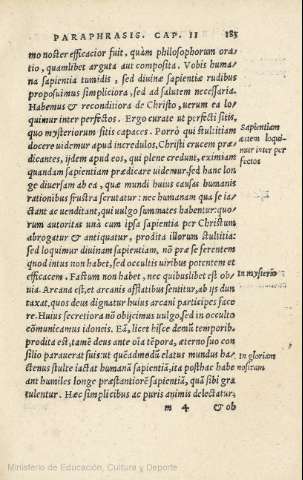 PARAPHRASIS. CAP. II 183
mo noster efficacior fuit, quàm philosophorum ora-
tio, quamlibet arguta aut composita. Vobis huma-
na sapientia tumidis, sed diuinæ sapientiæ rudibus
proposuimus simpliciora, sed ad salutem necessaria.
Habemus & reconditiora de Christo, uerum ea lo-
quimur inter perfectos. Ergo curate ut perfecti sitis,
quo mysteriorum sitis capaces. Porrò qui stultitiam
docere uidemur apud incredulos, Christi crucem præ-
dicantes, ijdem apud eos, qui plene credunt, eximiam
quandam sapientiam prædicare uidemur. sed hanc lon
ge diuersam ab ea, quæ mundi huius causas humanis
rationibus frustra scrutatur: nec humanam qua se ia-
ctant ac uenditant, qui uulgo summates habentur: quo-
rum autoritas unà cum ipsa sapientia per Christum
abrogatur & antiquatur, prodita illorum stultitia:
sed loquimur diuinam sapientiam, nō præ se ferentem
quod intus non habet, sed occultis uiribus potentem et
efficacem. Fastum non habet, nec quibuslibet est ob-
uia. Arcana est, et arcanis afflatibus sentitur, ab ijs dun
taxat, quos deus dignatur huius arcani participes face
re. Huius secretiora nō obijcimus uulgo, sed in occulto
cōmunicamus idoneis. Ea, licet hisce demū temporib.
prodita est, tamē deus ante oīa tēpora, æterno suo con
silio parauerat suis: ut quēadmodū elatus mundus ha-
ctenus stulte iactat humanā sapientiā, ita posthac habe
ant humiles longe præstantiorē sapientiā, quā sibi gra
tulentur. Hæc simplicibus ac puris animis delectatur,
m 4 & ob
Sapientiam
autem loqui-
mur inter per
fectos
In mysterio
In gloriam
nostram
Ministerio de Educación, Cultura y Deporte